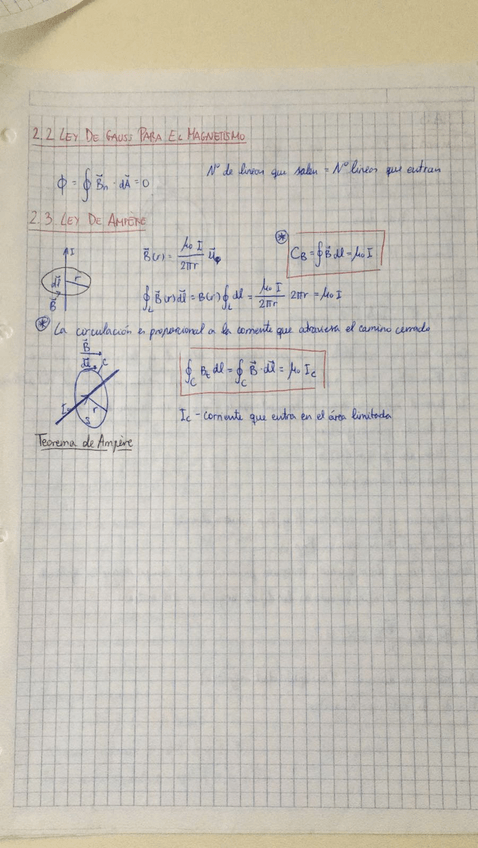 2.2 LEY DE GAUSS PARA EL MAGNETISMO
ϕ = ∮ B⃗n · dA⃗ = 0
Nº de lineas que salen = Nº lineas que entran
2.3. LEY DE AMPÈRE
I
r
dl⃗
B⃗
B⃗(r) = μ₀ I / 2πr u⃗φ
⊛ C_B = ∮ B⃗ dl = μ₀ I
∮_L B⃗(r) dl⃗ = B(r) ∮_L dl = μ₀ I / 2πr 2πr = μ₀ I
⊛ La circulación es proporcional a la corriente que atraviesa el camino cerrado
B⃗
dl⃗
C
I
r
S
∮_C B_t dl = ∮_C B⃗ · dl⃗ = μ₀ I_c
I_c - corriente que entra en el área limitada
Teorema de Ampère